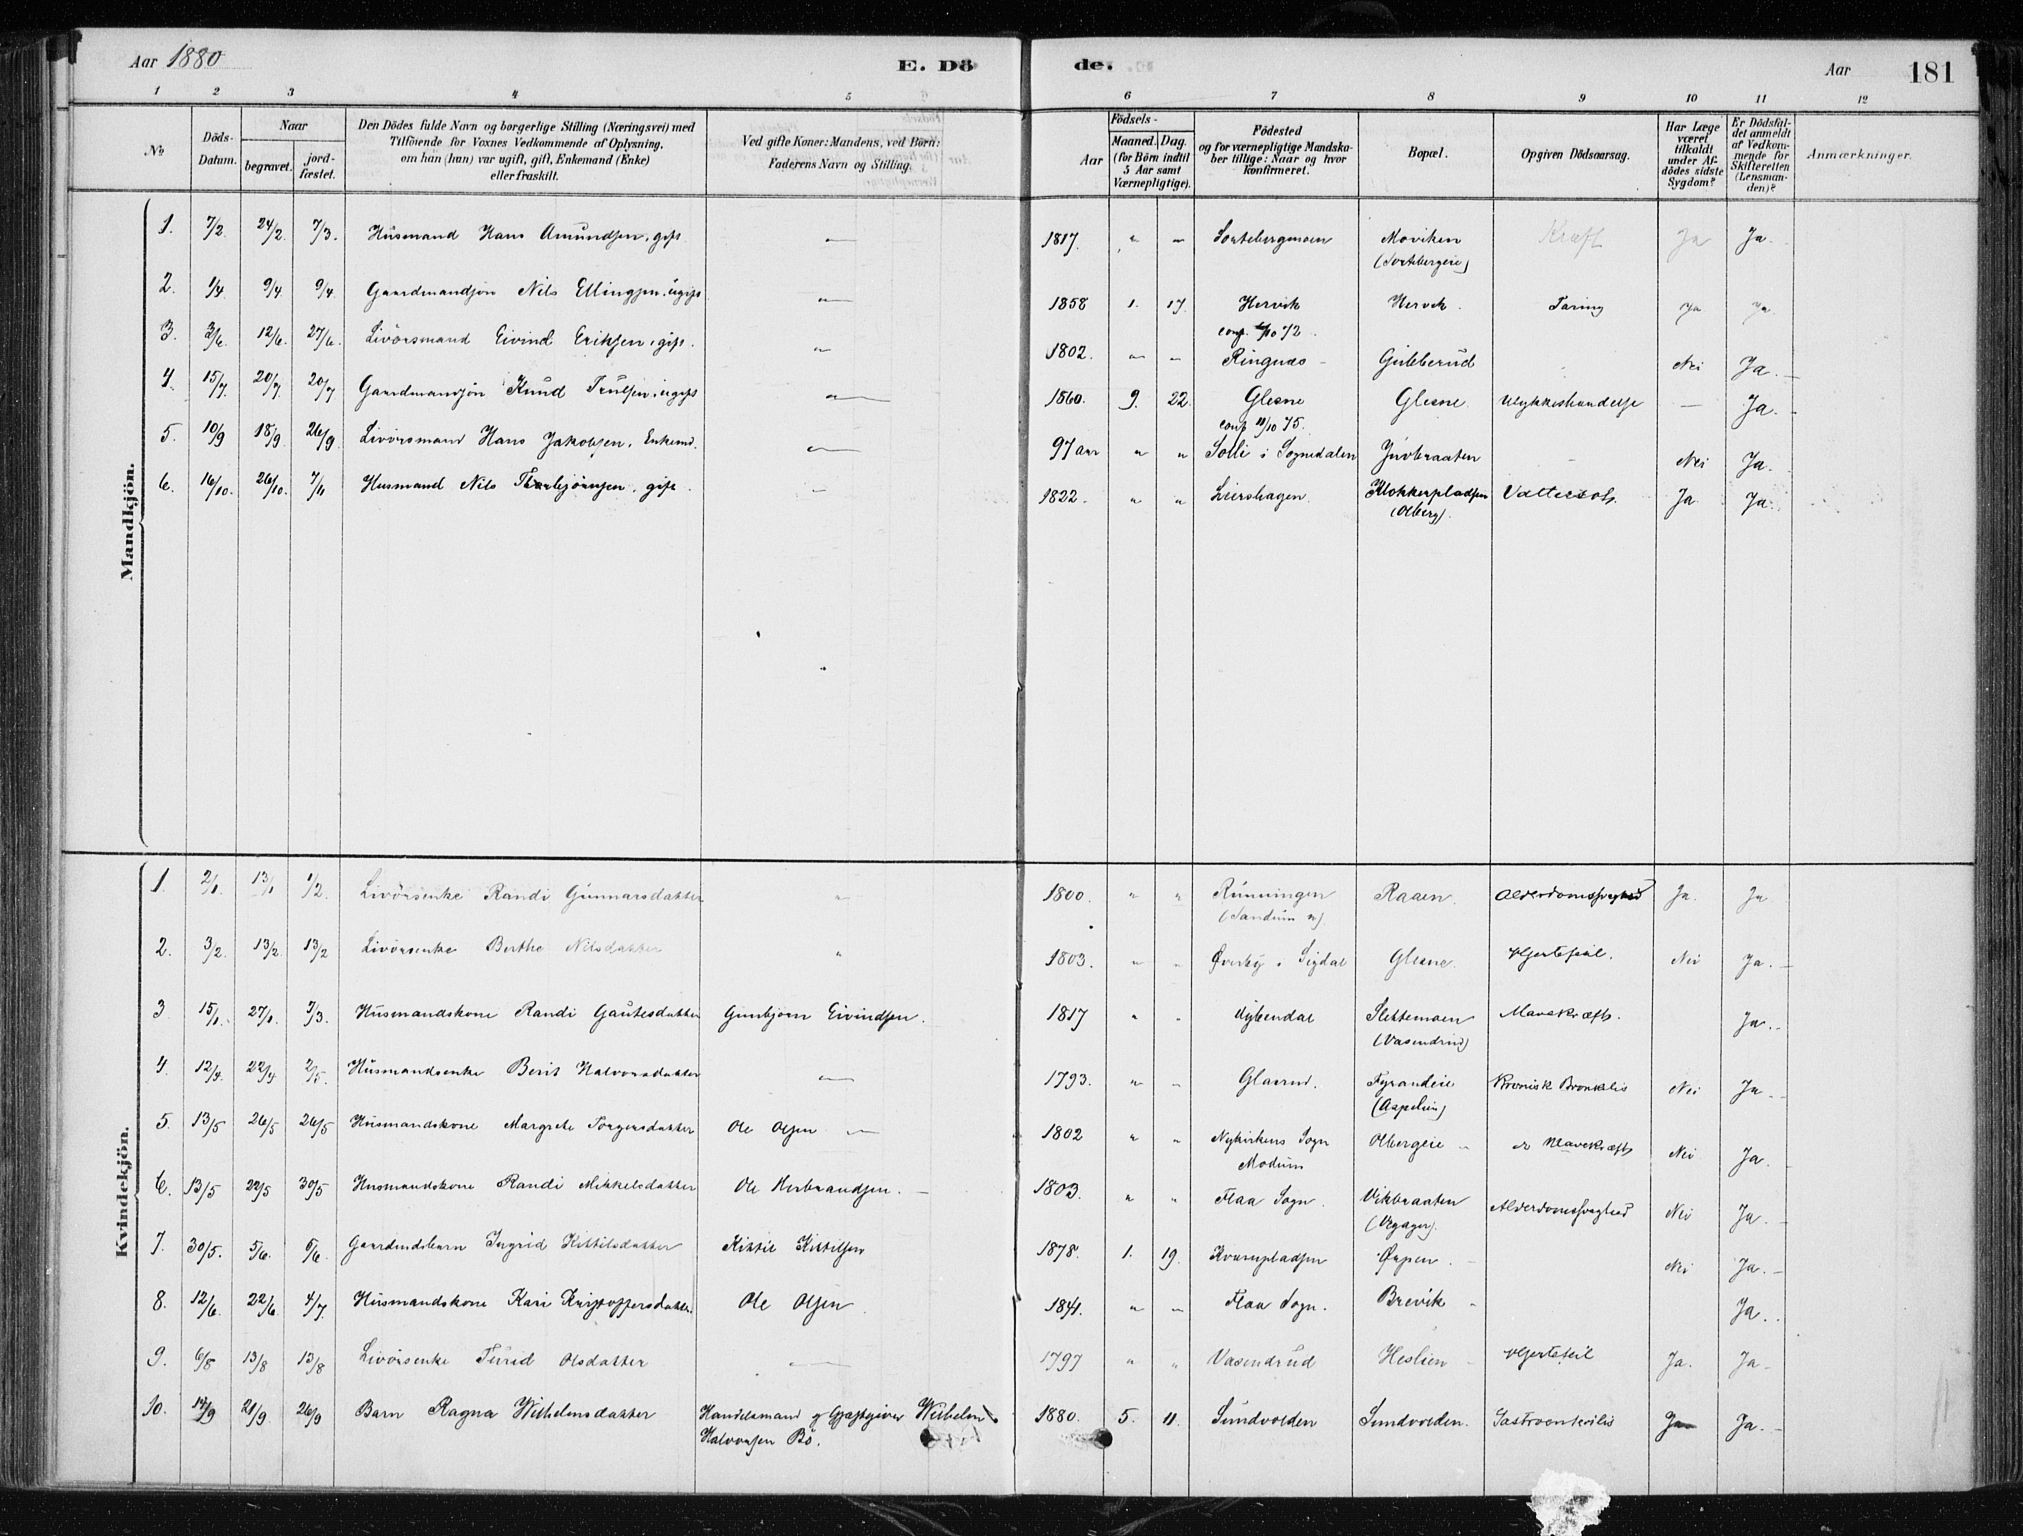 Aar 1880
E. Dö
de.
Aar
181
1 2 3 4 5 6 7 8 9 10 11 12
№
Döds-Datum.
Naar
begravet.
jord-fæstet.
Den Dödes fulde Navn og borgerlige Stilling (Næringsvei) med
Tilföiende for Voxnes Vedkommende af Oplysning,
om han (hun) var ugift, gift, Enkemand (Enke)
eller fraskilt.
Ved gifte Koner: Mandens, ved Börn:
Faderens Navn og Stilling.
Födsels-
Aar
Maaned.
Dag.
(for Börn indtil
5 Aar samt
Værnepligtige).
Födested
og for værnepligtige Mandska-
ber tillige: Naar og hvor
konfirmeret.
Bopæl.
Opgiven Dödsaarsag.
Har Læge
været
tilkaldt
under Af-
dödes sidste
Sygdom?
Er Dödsfal-
det anmeldt
af Vedkom-
mende for
Skifteretten
(Lensman-
den)?
Anmærkninger.
Mandkjön.
1. 7/2 24/2. 7/3. Husmand Hans Amundsen, gift — 1817. " — Sortebergmoen Moviken Kræft Ja Ja.
(Sortebergeie)
2. 1/4 9/4. 9/4. Gaardmandsön Nils Ellingsen, ugift — 1858 1. 17. Hervik Hervik. Tæring Ja Ja
conf. /10 72.
3. 3/6. 12/6. 27/6. Livörsmand Eivind Eriksen, gift. — 1802. — — Ringnæs Gulberud Nei Ja.
4. 15/7. 20/7 20/7 Gaardmandsön Knud Trulsen, ugift — 1860. 9. 22. Glesne Glesne Ulykkeshændelse — Ja.
conf /10 75.
5. 10/9 18/9. 26/9. Livörsmand Hans Jakobsen, Enkemd. — 97 aar " " Solli i Sognedalen — Nei Ja.
6. 16/10. 26/10. 7/11 Husmand Nils Thorbjörnsen, gift. — 1822. " " Leershagen. Klokkerpladsen Vattersot. Ja Ja.
(Olberg).
Kvindekjön.
1. 2/1. 13/1 1/2. Livörsenke Randi Gunnarsdatter " 1800. " " Rünningen Raaen. Alderdomssvaghed Ja. Ja
(Sandum )
2. 3/2. 13/2. 13/2 Livörsenke Berthe Nilsdatter " 1803. " " Överby i Sigdal Glesne. Hjertefeil. Nei Ja.
3 15/1. 27/1. 7/3. Husmandskone Randi Gautesdatter Gunbjörn Eivindsen. 1817 " " Dybendal Slettemoen Mavekræft. Ja.
(Vasendrud)
4. 12/4. 22/4 2/5. Husmandsenke Berit Halvorsdatter — 1793. " " Glaarud. Tyrandeie Kronisk Bronkitis Nei Ja.
(Aspelien)
5. 13/5 26/5 26/5 Husmandskone Margrete Torgersdatter Ole Olsen — 1802 " " Nykirkens Sogn Olbergeie Mavekræft Nei Ja.
Modum
6. 13/5 22/5 30/5 Husmandskone Randi Mikkelsdatter Ole Herbrandsen. 1803. " " Flaa Sogn. Vikbraaten Alderdomssvaghed Nei Ja.
7. 30/5. 5/6. 6/6. Gaardmdsbarn Ingrid Kittilsdatter Kittil Kittilsen 1878. 1. 19. Kværnpladsen Ørpen. Nei Ja.
8. 12/6. 22/6 4/7. Husmandskone Kari Kristoffersdatter. Ole Olsen 1841. " " Flaa Sogn. Brevik Ja.
9. 6/8 13/8 13/8 Livörsenke Turid Olsdatter — 1797 " " Vasendrud Heslien Hjertefeil Ja. Ja
10. 14/9 21/9. 26/9 Barn Ragna Wilhelmsdatter Handelsmand og Gjæstgiver Wilhelm 1880. 5. 11. Sundvolden Sundvolden. Gastroenteritis Ja Ja.
Halvorsen Bö.